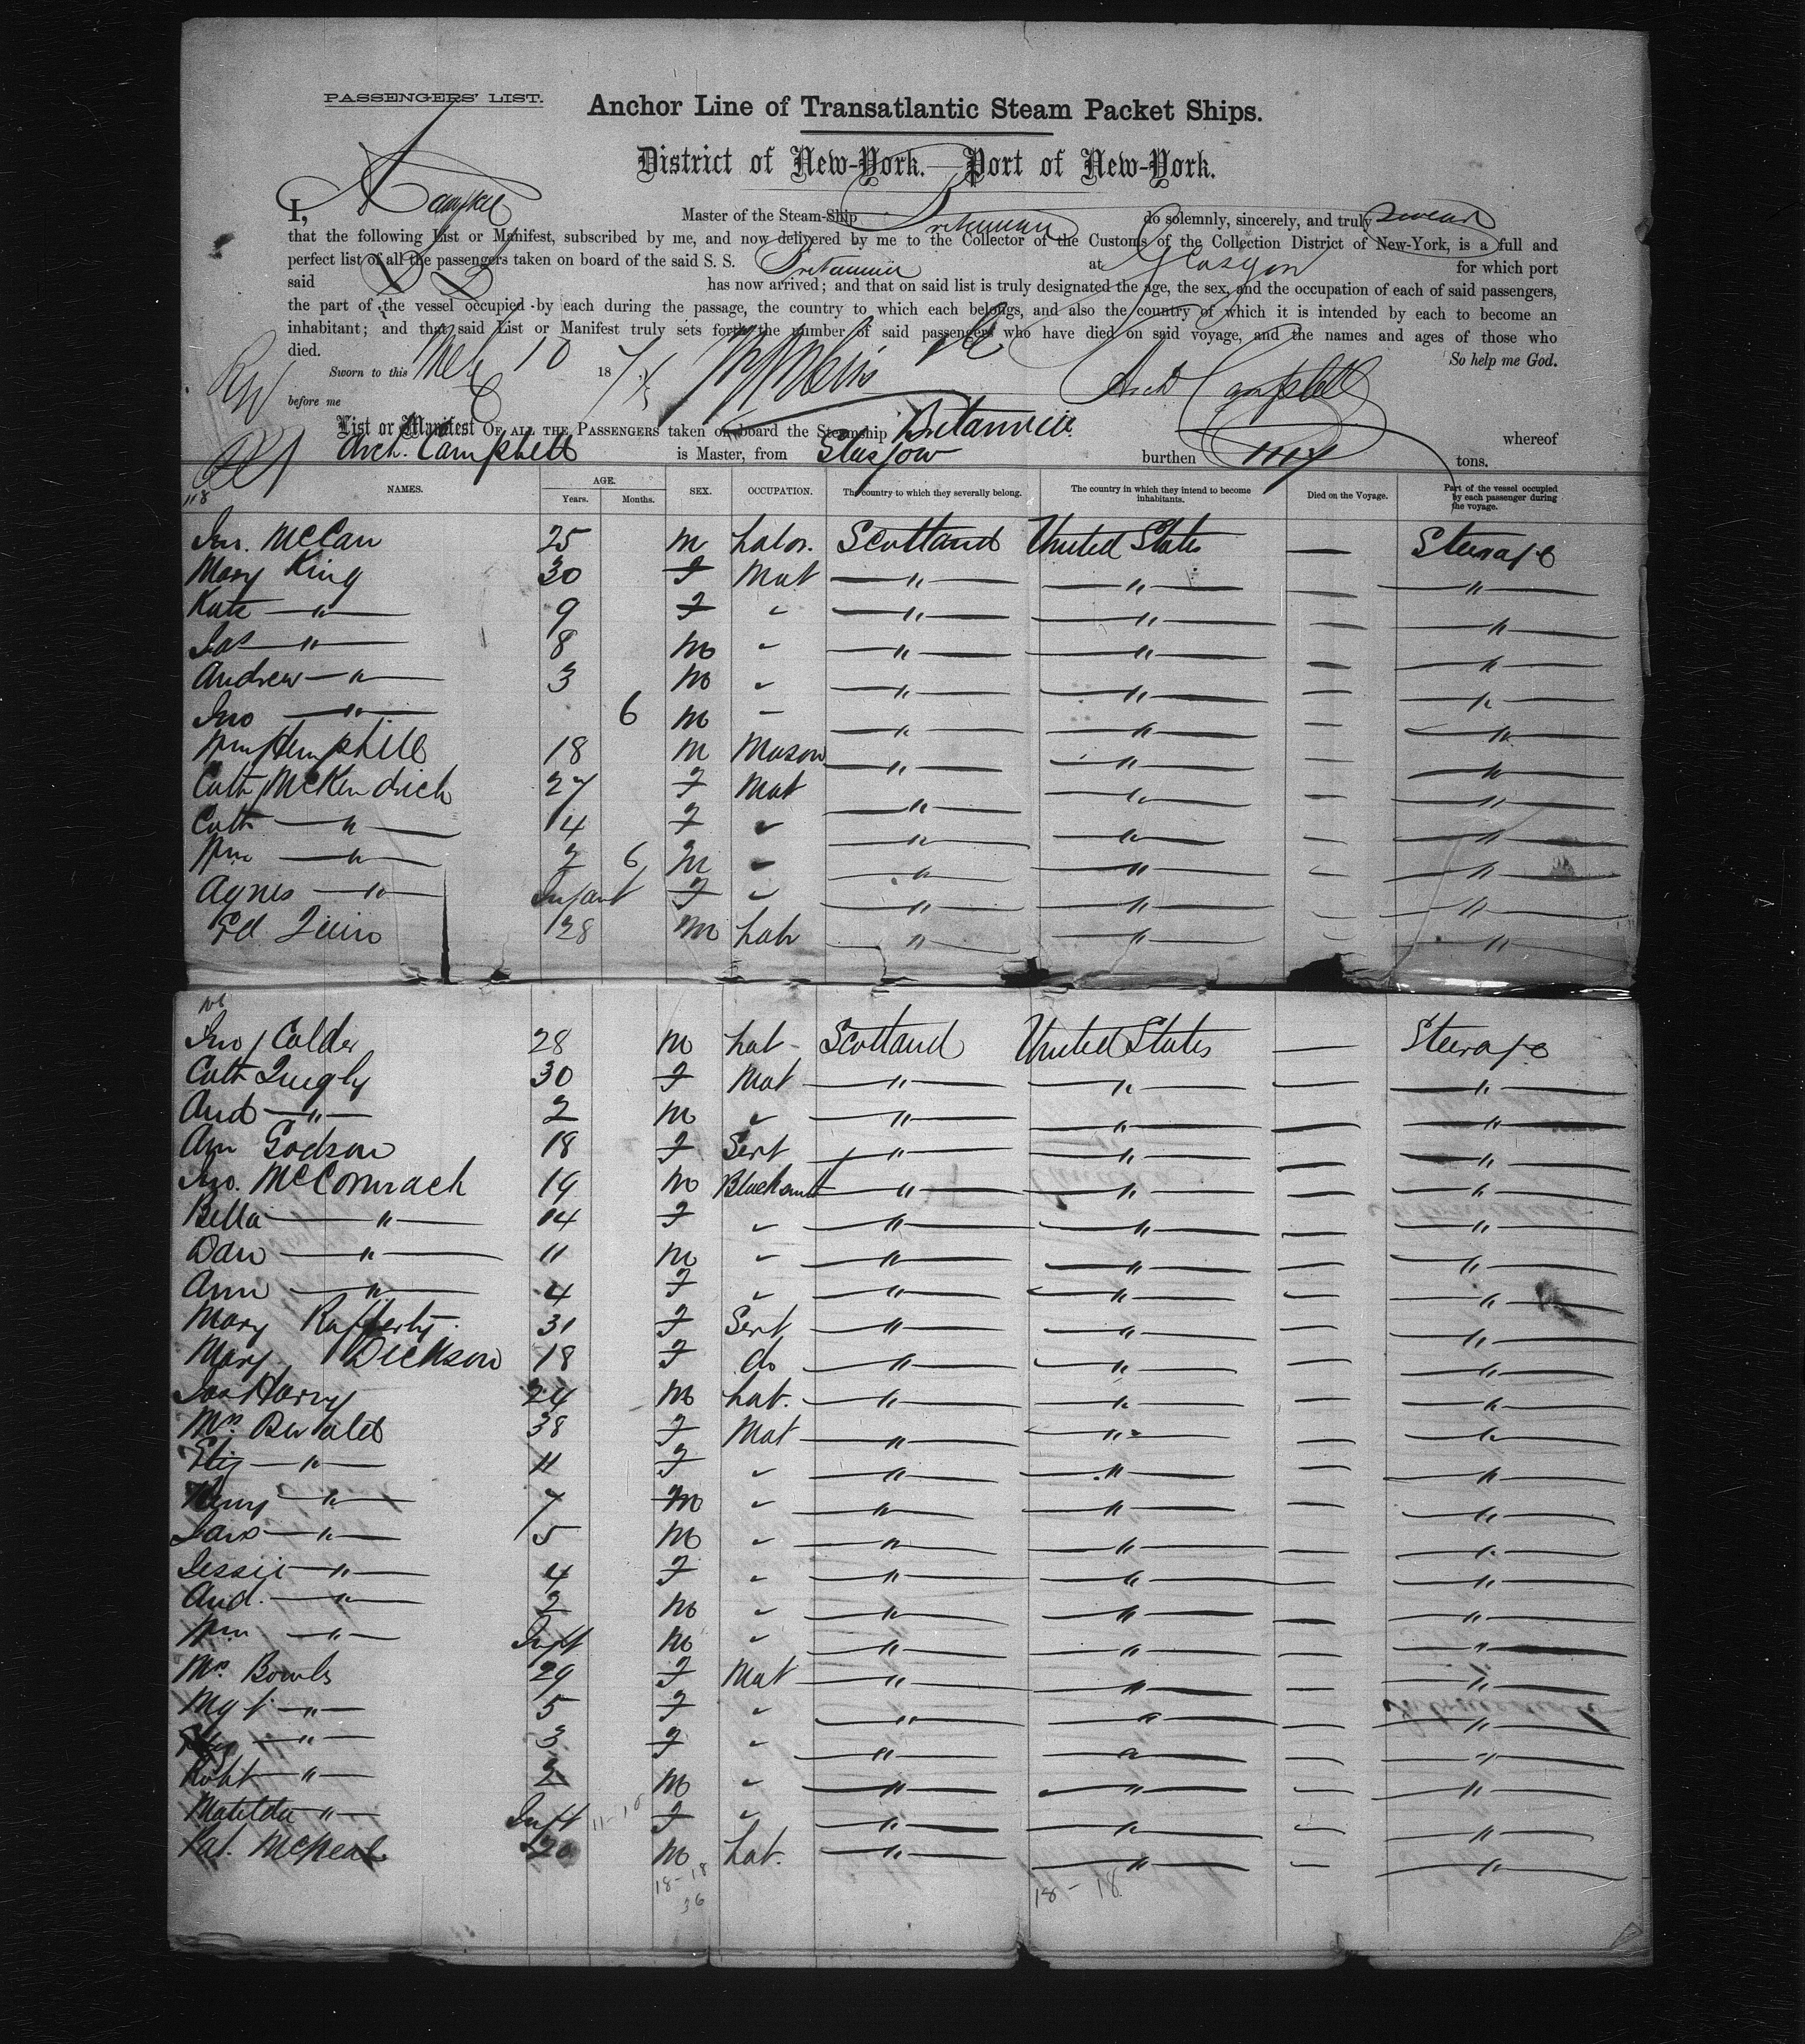 PASSENGERS' LIST.
Anchor Line of Transatlantic Steam Packet Ships.
District of New-York.—Port of New-York.
I, A Campbell Master of the Steam-Ship Britannia do solemnly, sincerely, and truly swear
that the following List or Manifest, subscribed by me, and now delivered by me to the Collector of the Customs of the Collection District of New-York, is a full and
perfect list of all the passengers taken on board of the said S. S. Britannia at Glasgow for which port
said has now arrived; and that on said list is truly designated the age, the sex, and the occupation of each of said passengers,
the part of the vessel occupied by each during the passage, the country to which each belongs, and also the country of which it is intended by each to become an
inhabitant; and that said List or Manifest truly sets forth the number of said passengers who have died on said voyage, and the names and ages of those who
died. So help me God.
Sworn to this 10 187 Arch Campbell
before me
List or Manifest OF ALL THE PASSENGERS taken on board the Steamship Britannia whereof
Arch. Campbell is Master, from Glasgow burthen tons.
118
NAMES. AGE. Years. Months. SEX. OCCUPATION. The country to which they severally belong. The country in which they intend to become inhabitants. Died on the Voyage. Part of the vessel occupied by each passenger during the voyage.
Jno. McCan 25 M Labor. Scotland United States — Steerage
Mary King 30 F Mat " " — "
Kate " 9 F " " " — "
Jas " 8 M " " " — "
Andrew " 3 M " " " — "
Jno " 6 M – " " — "
Wm Hemphill 18 M Mason " " — "
Cath McKendrick 27 F Mat " " — "
Cath " 4 F " " " — "
Wm " 2 6 M " " " — "
Agnes " Infant F " " " — "
Ed Quin 28 M Labr " " — "
Jno Calder 28 M Lab Scotland United States — Steerage
Cath Quigly 30 F Mat " " — "
And " 2 M " " " — "
Ann Godson 18 F Servt " " — "
Jno. McCormack 19 M Blacksmit " " — "
Bella " 14 F " " " — "
Dan " 11 M " " " — "
Ann " 4 F " " " — "
Mary Rafferty 31 F Servt " " — "
Mary Dickson 18 F do " " — "
Jas Harvy 24 M Lab. " " — "
Mrs 38 F Mat " " — "
Eliz " 11 F " " " — "
Henry " 7 M " " " — "
Jas " 5 M " " " — "
Jessie " 4 F " " " — "
And. " 2 M " " " — "
Wm " Inft M " " " — "
Mrs. Bowls 29 F Mat " " — "
Mgt " 5 F " " " — "
" 3 F " " " — "
Robt " 2 M " " " — "
Matilda " Inft 11-10 F " " " — "
Pat. McNeal 20 M Lab. " " — "
18-18 18-18
36